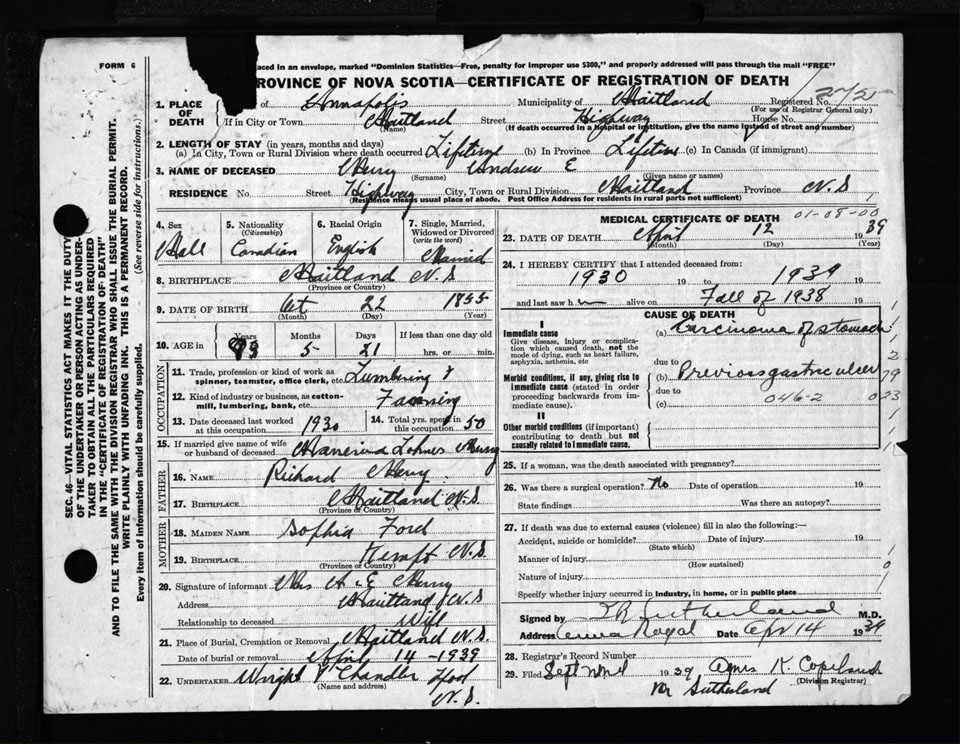 FORM 6
aced in an envelope, marked "Dominion Statistics—Free, penalty for improper use $300," and properly addressed will pass through the mail "FREE"
ROVINCE OF NOVA SCOTIA—CERTIFICATE OF REGISTRATION OF DEATH
272
1. PLACE OF DEATH of Annapolis Municipality of Maitland Registered No.
(For use of Registrar General only)
If in City or Town Maitland Street Highway House No.
(Name) (If death occurred in a hospital or institution, give the name instead of street and number)
2. LENGTH OF STAY (in years, months and days)
(a) In City, Town or Rural Division where death occurred Lifetime (b) In Province Lifetime (c) In Canada (if immigrant)
3. NAME OF DECEASED Merry Andrew E
(Surname) (Given name or names)
RESIDENCE No. Street Highway City, Town or Rural Division Maitland Province N.S
(Residence means usual place of abode. Post Office Address for residents in rural parts not sufficient)
4. Sex
Male
5. Nationality
(Citizenship)
Canadian
6. Racial Origin
English
7. Single, Married, Widowed or Divorced
(write the word)
Married
8. BIRTHPLACE Maitland N.S
(Province or Country)
9. DATE OF BIRTH Oct 22 1855
(Month) (Day) (Year)
10. AGE in Years Months Days If less than one day old
83 5 21 hrs. or min.
OCCUPATION
11. Trade, profession or kind of work as
spinner, teamster, office clerk, etc. Lumbering &
12. Kind of industry or business, as cotton-
mill, lumbering, bank, etc. Farming
13. Date deceased last worked
at this occupation 1930
14. Total yrs. spent in
this occupation 50
15. If married give name of wife
or husband of deceased Lohnes Merry
FATHER
16. NAME Richard Merry
17. BIRTHPLACE Maitland N.S.
(Province or Country)
MOTHER
18. MAIDEN NAME Sophia Ford
19. BIRTHPLACE Kempt N.S
(Province or Country)
20. Signature of informant Mrs A. E Merry
Address Maitland N.S
Relationship to deceased Wife
21. Place of Burial, Cremation or Removal Maitland N.S.
Date of burial or removal April 14 - 1939
22. UNDERTAKER Wright V Chandler
(Name and address)
N.S.
MEDICAL CERTIFICATE OF DEATH
01-08-00
23. DATE OF DEATH April 12 1939
(Month) (Day) (Year)
24. I HEREBY CERTIFY that I attended deceased from:
1930 19 to 1939 19
and last saw h im alive on Fall of 1938 19
CAUSE OF DEATH
I
Immediate cause
Give disease, injury or complica-
tion which caused death, not the
mode of dying, such as heart failure,
asphyxia, asthenia, etc
(a) Carcinoma of stomach
due to
Morbid conditions, if any, giving rise to
immediate cause (stated in order
proceeding backwards from im-
mediate cause).
(b) Previous gastric ulcer
due to
(c) 046-2
023
II
Other morbid conditions (if important)
contributing to death but not
causally related to immediate cause.
25. If a woman, was the death associated with pregnancy?
26. Was there a surgical operation? No Date of operation 19
State findings Was there an autopsy?
27. If death was due to external causes (violence) fill in also the following:—
Accident, suicide or homicide? Date of injury 19
(State which)
Manner of injury
(How sustained)
Nature of injury
Specify whether injury occurred in industry, in home, or in public place
Signed by Sutherland M.D.
Address Royal Date Apr 14 1939
28. Registrar's Record Number
29. Filed Sept 1939 Agnes K. Copeland
(Division Registrar)
Sutherland
SEC. 46—VITAL STATISTICS ACT MAKES IT THE DUTY
OF THE UNDERTAKER OR PERSON ACTING AS UNDER-
TAKER TO OBTAIN ALL THE PARTICULARS REQUIRED
IN THE "CERTIFICATE OF REGISTRATION OF DEATH"
AND TO FILE THE SAME WITH THE DIVISION REGISTRAR WHO SHALL ISSUE THE BURIAL PERMIT.
WRITE PLAINLY WITH UNFADING INK. THIS IS A PERMANENT RECORD.
Every item of information should be carefully supplied. (See reverse side for instructions).